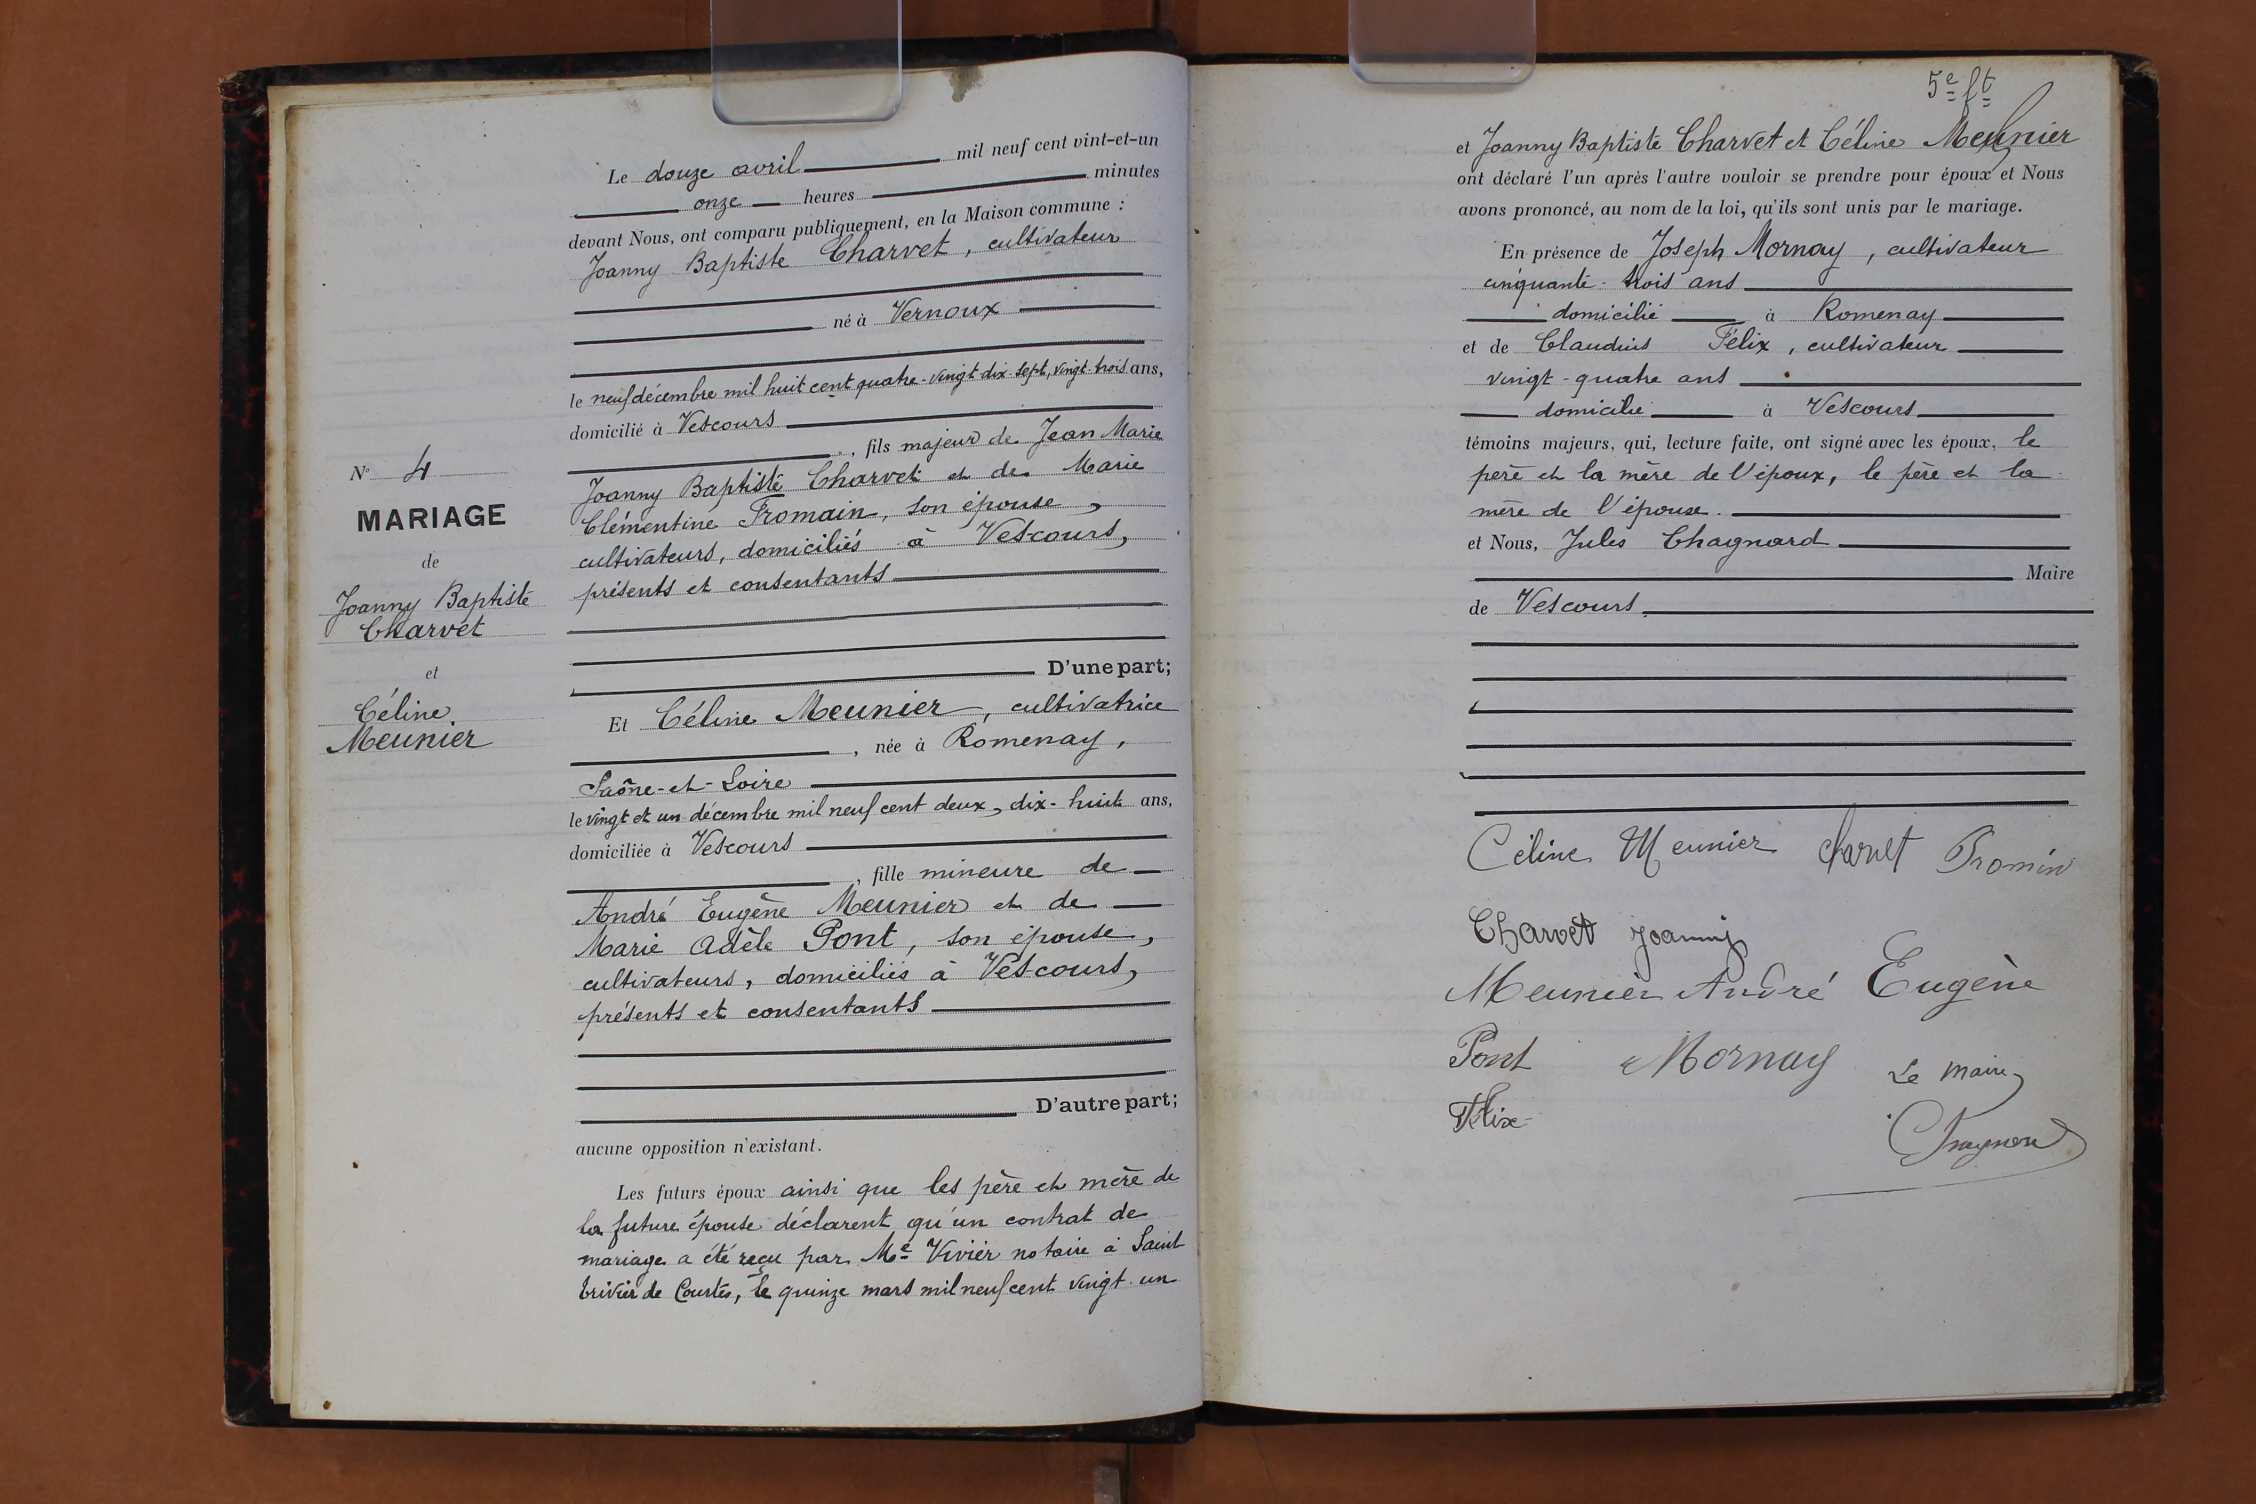 Le douze avril mil neuf cent vint-et-un
onze heures minutes
devant Nous, ont comparu publiquement, en la Maison commune :
Joanny Baptiste Charvet, cultivateur
né à Vernoux
le neuf décembre mil huit cent quatre-vingt-dix-sept, vingt-trois ans,
domicilié à Vescours
, fils majeur de Jean Marie
Joanny Baptiste Charvet et de Marie
Clémentine Fromain, son épouse,
cultivateurs, domiciliés à Vescours,
présents et consentants
D'une part;
Et Céline Meunier, cultivatrice
, née à Romenay,
Saône-et-Loire
le vingt et un décembre mil neuf cent deux, dix-huit ans,
domiciliée à Vescours
, fille mineure de
André Eugène Meunier et de
Marie Adèle Pont, son épouse,
cultivateurs, domiciliés à Vescours,
présents et consentants
D'autre part;
aucune opposition n'existant.
Les futurs époux ainsi que les père et mère de
la future épouse déclarent qu'un contrat de
mariage a été reçu par Me Vivier notaire à Saint
trivier de Courtes, le quinze mars mil neuf cent vingt-un
N° 4
MARIAGE
de
Joanny Baptiste
Charvet
et
Céline
Meunier
5e ft
et Joanny Baptiste Charvet et Céline Meunier
ont déclaré l'un après l'autre vouloir se prendre pour époux et Nous
avons prononcé, au nom de la loi, qu'ils sont unis par le mariage.
En présence de Joseph Mornay, cultivateur
cinquante-trois ans
domicilié à Romenay
et de Claudius Félix, cultivateur
vingt-quatre ans
domicilié à Vescours
témoins majeurs, qui, lecture faite, ont signé avec les époux, le
père et la mère de l'époux, le père et la
mère de l'épouse.
et Nous, Jules Chagnard
Maire
de Vescours
Céline Meunier Charvet Fromin
Charvet Joanny
Meunier André Eugène
Pont Mornay Le Maire
Félix Chagnard